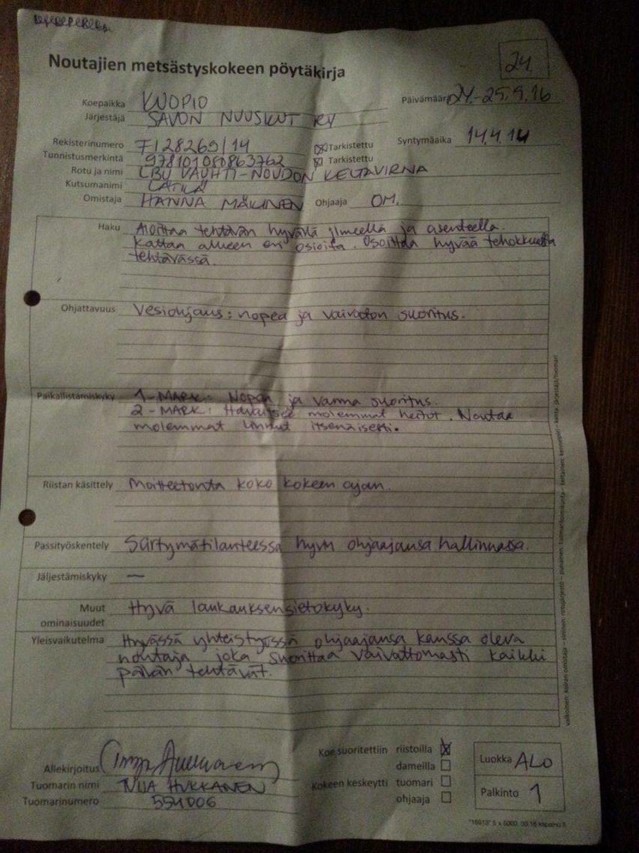 24.
Noutajien metsästyskokeen pöytäkirja
Koepaikka KUOPIO Päivämäärä 24.-25.9.16
Järjestäjä SAVON NUUSKUT RY
Rekisterinumero FI28269/14 Tarkistettu Syntymäaika 14.4.14
Tunnistusmerkintä Tarkistettu
Rotu ja nimi LBU VAUHTI-NOUDON KELTAVIRNA
Kutsumanimi
Omistaja HANNA MÄKINEN Ohjaaja OM.
Haku Aloittaa tehtävän hyvällä ilmeellä ja asenteella.
Kattaa alueen eri osioita. Osoittaa hyvää tehokkuutta
tehtävässä.
Ohjattavuus Vesiohjaus: nopea ja vaivaton suoritus.
Paikallistamiskyky 1-MARK: Nopea ja varma suoritus.
2-MARK: Havaitsee molemmat heitot. Noutaa
molemmat linnut itsenäisesti.
Riistan käsittely Moitteetonta koko kokeen ajan.
Passityöskentely Siirtymätilanteessa hyvin ohjaajansa hallinnassa.
Jäljestämiskyky —
Muut Hyvä laukauksensietokyky.
ominaisuudet
Yleisvaikutelma Hyvässä yhteistyössä ohjaajansa kanssa oleva
noutaja joka suorittaa vaivattomasti kaikki
päivän tehtävät.
Koe suoritettiin riistoilla
dameilla
Luokka ALO
Allekirjoitus
Kokeen keskeytti tuomari
Tuomarin nimi HUKKANEN
Palkinto 1
ohjaaja
Tuomarinumero